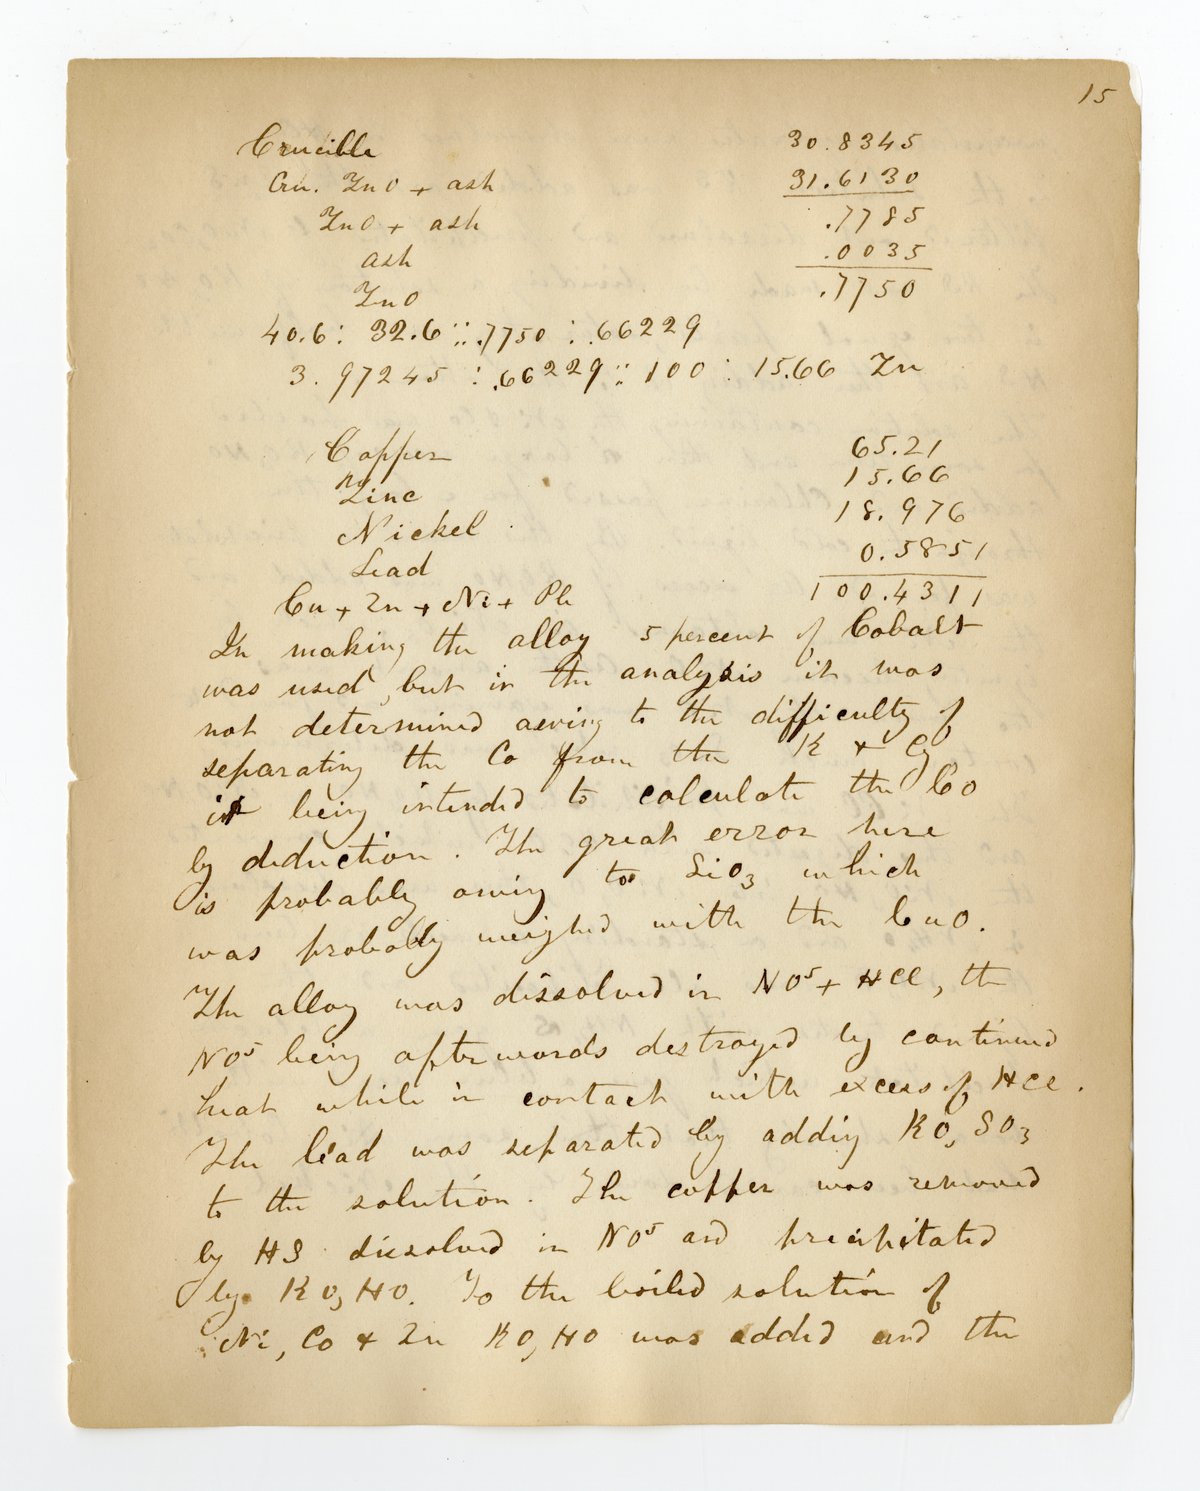 15
Crucible 30.8345
Cru. ZnO + ash 31.6130
ZnO + ash .7785
ash .0035
ZnO .7750
40.6 : 32.6 :: .7750 : .66229
3.97245 : .66229 :: 100 : 15.66 Zn
Copper 65.21
Zinc 15.66
Nickel 18.976
Lead 0.5851
Cu + Zn + Ni + Pb 100.4311
In making the alloy 5 percent of Cobalt
was used, but in the analysis it was
not determined owing to the difficulty of
separating the Co from the K + Cy
it being intended to calculate the Co
by deduction. The great error here
is probably owing to SiO3 which
was probably weighed with the CuO.
The alloy was dissolved in NO5 + HCl, the
NO5 being afterwords destroyed by continued
heat while in contact with excess of HCl.
The lead was separated by addig KO, SO3
to the solution. The copper was removed
by HS dissolved in NO5 and precipitated
by KO, HO. To the boiled solution of
Ni, Co + Zn KO, HO was added and the